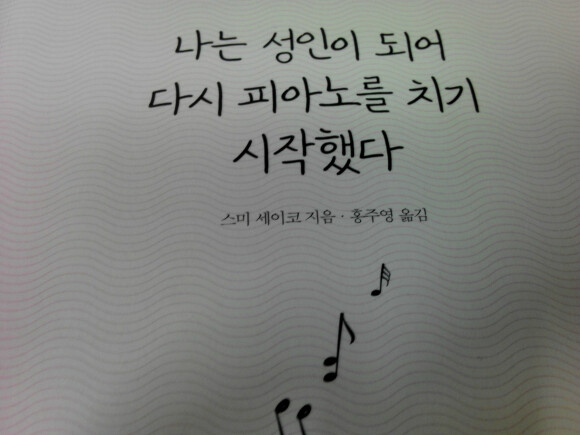 나는 성인이 되어
다시 피아노를 치기
시작했다
스미 세이코 지음 · 홍주영 옮김